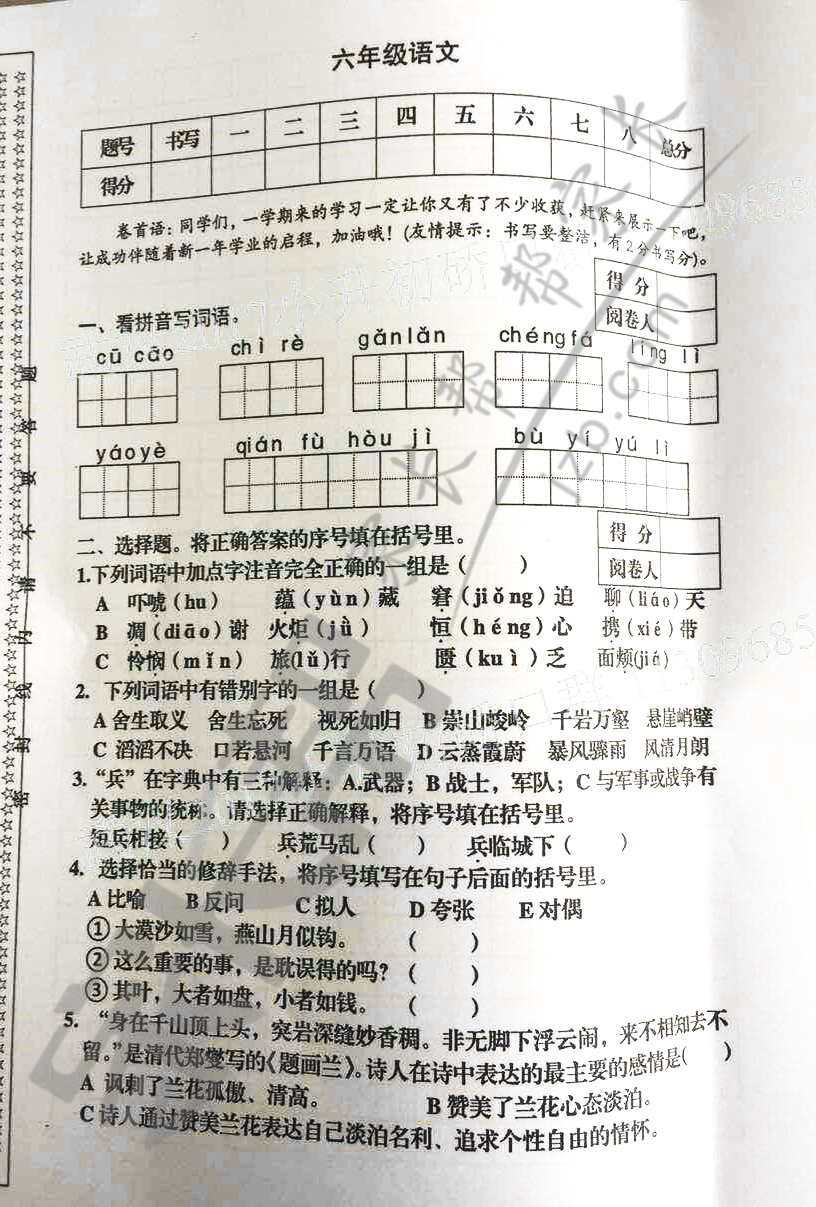 六年级语文
题号 书写 一 二 三 四 五 六 七 八 总分
得分
卷首语：同学们，一学期来的学习一定让你又有了不少收获，赶紧来展示一下吧，
让成功伴随着新一年学业的启程，加油哦！(友情提示：书写要整洁，有2分书写分)。
得分
阅卷人
一、看拼音写词语。
cū cāo chì rè gǎnlǎn chéngfá líng lì
yáoyè qián fù hòu jì bù yí yú lì
得分
阅卷人
二、选择题。将正确答案的序号填在括号里。
1.下列词语中加点字注音完全正确的一组是（ ）
A 吓唬（hu） 蕴（yùn）藏 窘（jiǒng）迫 聊（liáo）天
B 凋（diāo）谢 火炬（jǜ） 恒（héng）心 携（xié）带
C 怜悯（mǐn） 旅(lǔ)行 匮（kuì）乏 面颊(jiá)
2. 下列词语中有错别字的一组是（ ）
A 舍生取义 舍生忘死 视死如归 B 崇山峻岭 千岩万壑 悬崖峭壁
C 滔滔不决 口若悬河 千言万语 D 云蒸霞蔚 暴风骤雨 风清月朗
3.“兵”在字典中有三种解释：A.武器；B 战士，军队；C 与军事或战争有
关事物的统称。请选择正确解释，将序号填在括号里。
短兵相接（ ） 兵荒马乱（ ） 兵临城下（ ）
4. 选择恰当的修辞手法，将序号填写在句子后面的括号里。
A 比喻 B 反问 C 拟人 D 夸张 E 对偶
①大漠沙如雪，燕山月似钩。 （ ）
②这么重要的事，是耽误得的吗？（ ）
③其叶，大者如盘，小者如钱。 （ ）
5. “身在千山顶上头，突岩深缝妙香稠。非无脚下浮云闹，来不相知去不
留。”是清代郑燮写的《题画兰》。诗人在诗中表达的最主要的感情是( )
A 讽刺了兰花孤傲、清高。 B 赞美了兰花心态淡泊.
C 诗人通过赞美兰花表达自己淡泊名利、追求个性自由的情怀.
密封线内请不要答题
家长帮
jzb.com